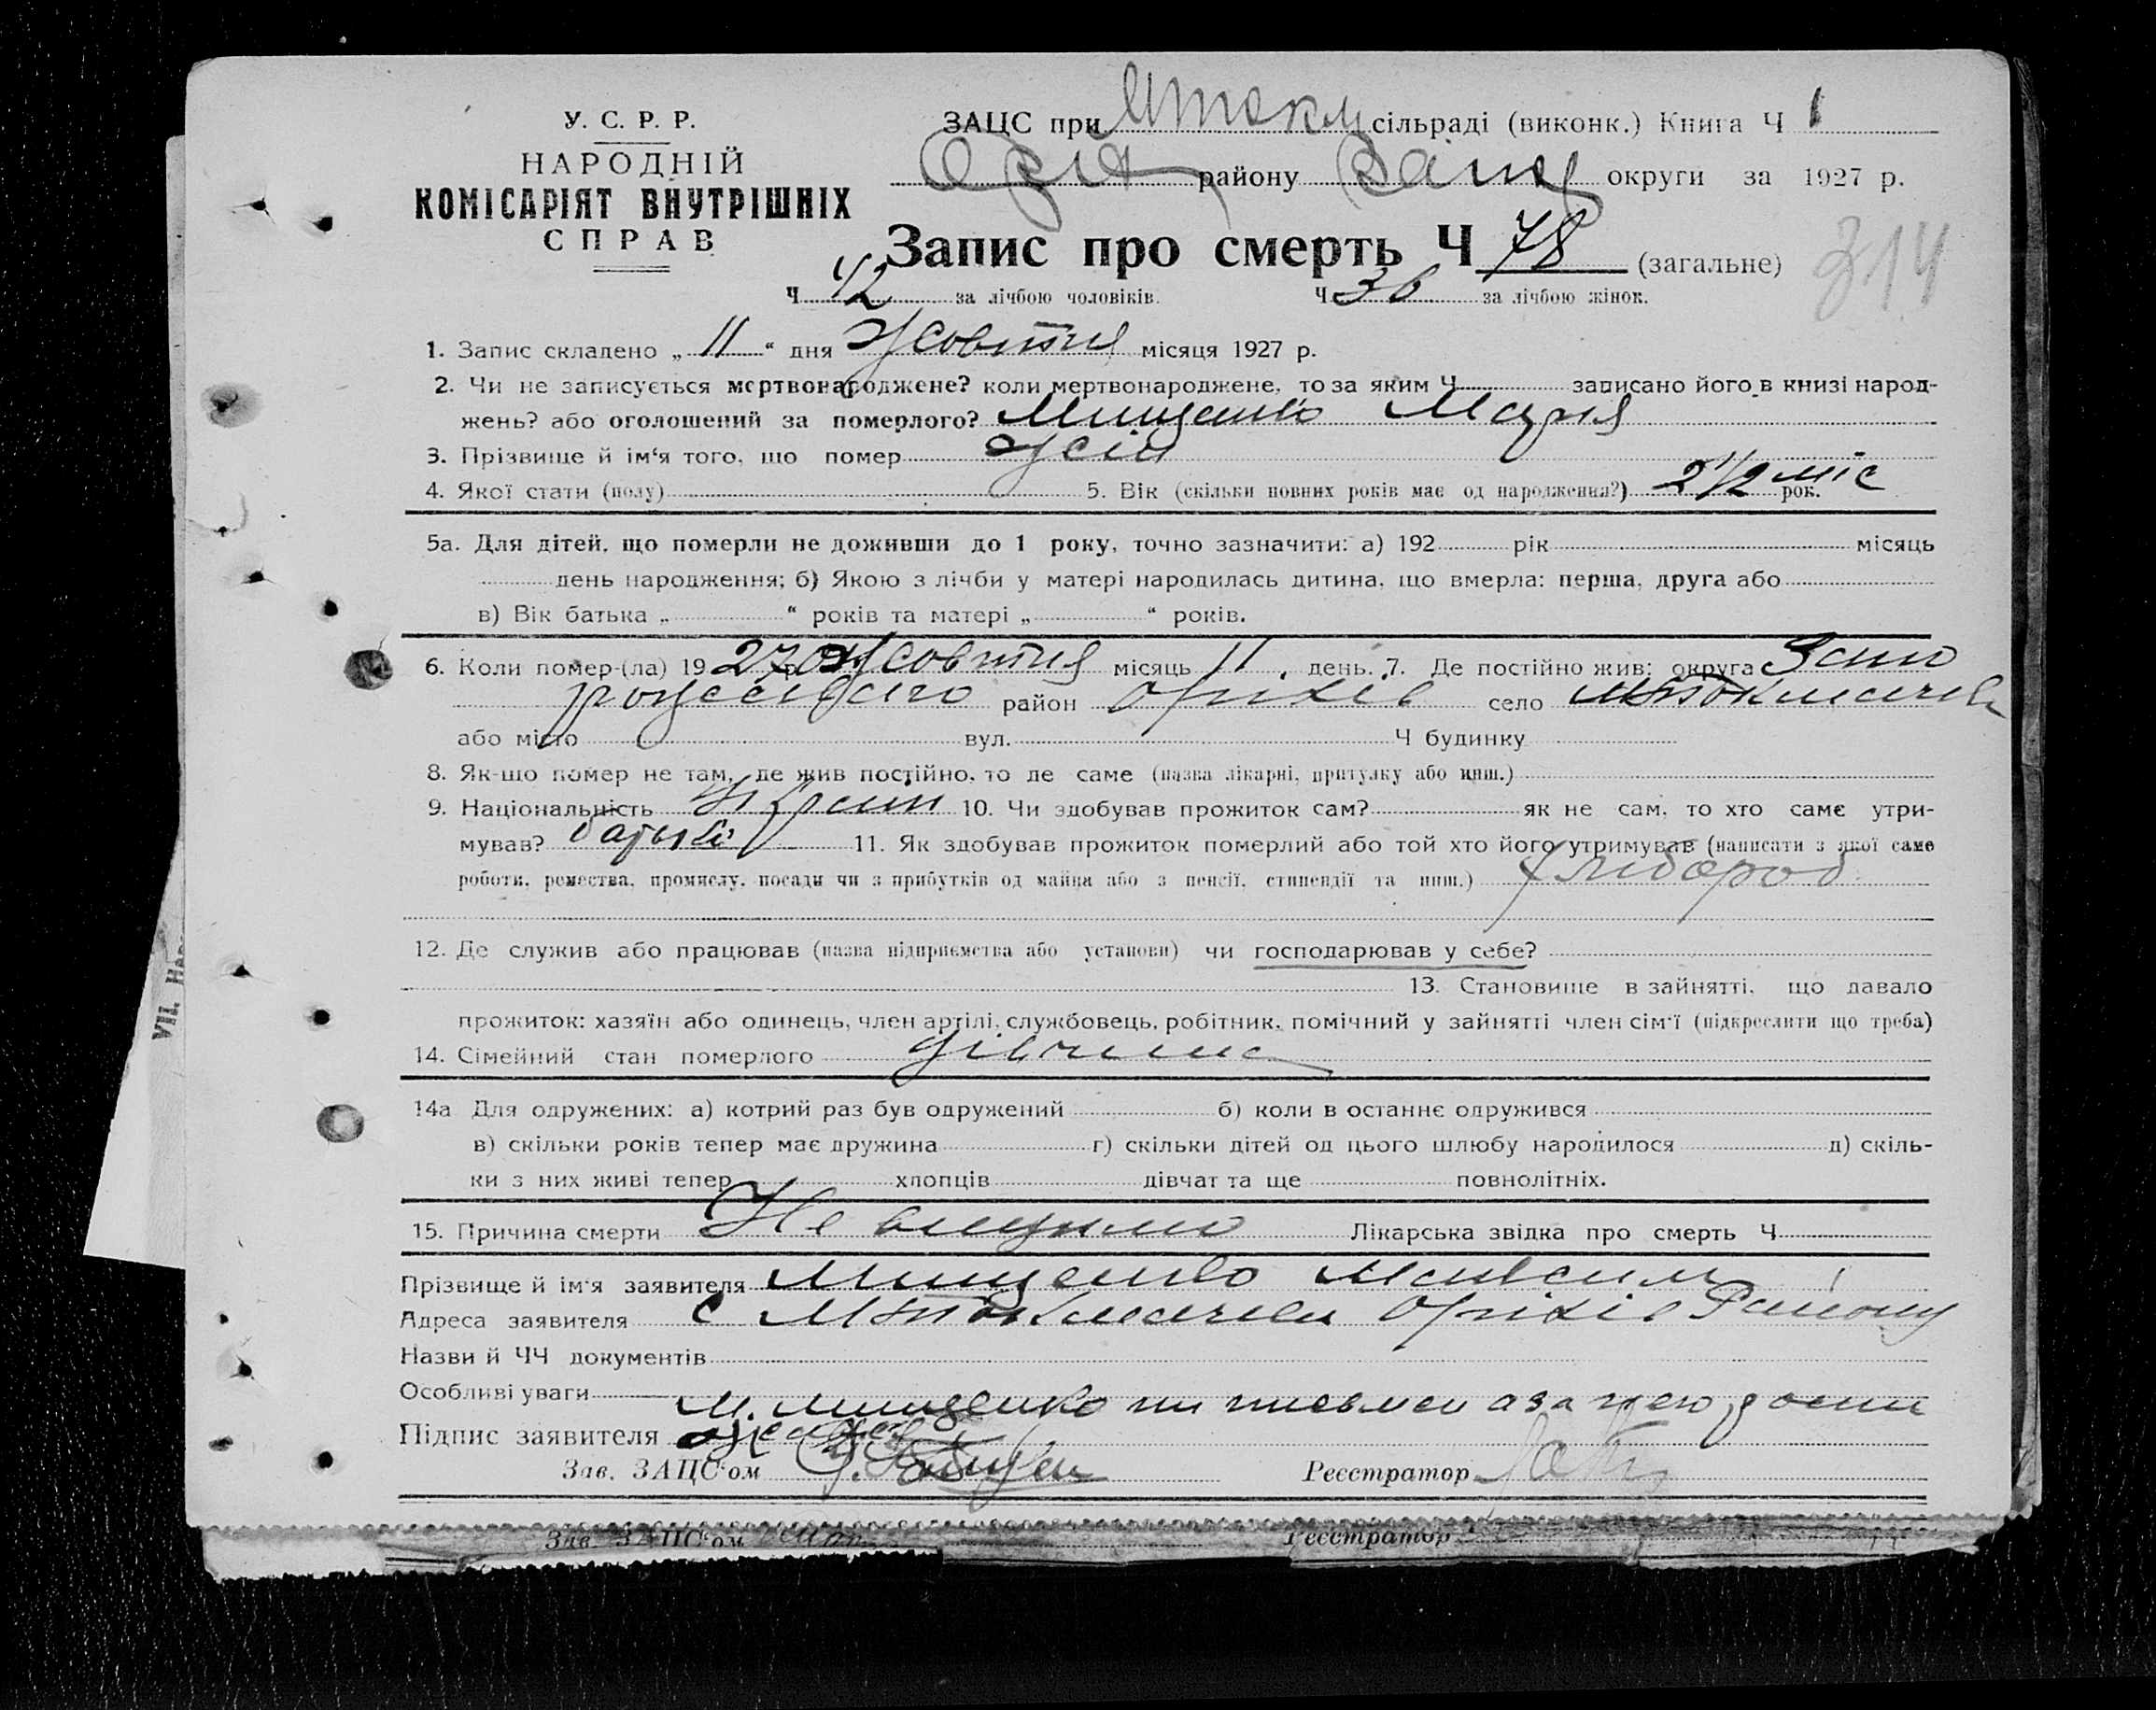 У. С. Р. Р.
НАРОДНІЙ
КОМІСАРІЯТ ВНУТРІШНІХ
СПРАВ
ЗАЦС при сільраді (виконк.) Книга Ч 1
району округи за 1927 р.
Запис про смерть Ч 78 (загальне)
314
Ч 42 за лічбою чоловіків. Ч 36 за лічбою жінок.
1. Запис складено „ 11 “ дня Жовтня місяця 1927 р.
2. Чи не записується мертвонароджене? коли мертвонароджене, то за яким Ч записано його в книзі народ-
жень? або оголошений за померлого? Мищенко Мария
3. Прізвище й ім‘я того, що помер жsін
4. Якої стати (полу) 5. Вік (скільки повних років має од народження?) 2 1/2 міс рок.
5а. Для дітей, що померли не доживши до 1 року, точно зазначити: а) 192 рік місяць
день народження; б) Якою з лічби у матері народилась дитина, що вмерла: перша, друга або
в) Вік батька „ “ років та матері „ “ років.
6. Коли помер-(ла) 19 27 р. Жовтня місяць 11 день. 7. Де постійно жив: округа Запо
район Оріхів село
або місто вул. Ч будинку
8. Як-що помер не там, де жив постійно, то де саме (назва лікарні, притулку або инш.)
9. Національність Україн 10. Чи здобував прожиток сам? як не сам, то хто саме утри-
мував? батькі 11. Як здобував прожиток померлий або той хто його утримував (написати з якої саме
роботи, ремества, промислу, посади чи з прибутків од майна або з пенсії, стипендії та инш.) хлібороб
12. Де служив або працював (назва підприємства або установи) чи господарював у себе?
13. Становище в зайнятті, що давало
прожиток: хазяїн або одинець, член артілі, службовець, робітник, помічний у зайнятті член сім‘ї (підкреслити що треба)
14. Сімейний стан померлого дівчина
14а Для одружених: а) котрий раз був одружений б) коли в останнє одружився
в) скільки років тепер має дружина г) скільки дітей од цього шлюбу народилося д) скіль-
ки з них живі тепер хлопців дівчат та ще повнолітніх.
15. Причина смерти Не Лікарська звідка про смерть Ч
Прізвище й ім‘я заявителя Мищенко Максим
Адреса заявителя с Оріхів Району
Назви й ЧЧ документів
Особливі уваги М. Мищенко ни писмен а за него
Підпис заявителя
Зав. ЗАЦС‘ом Реєстратор
Зав. ЗАЦС‘ом Реєстратор